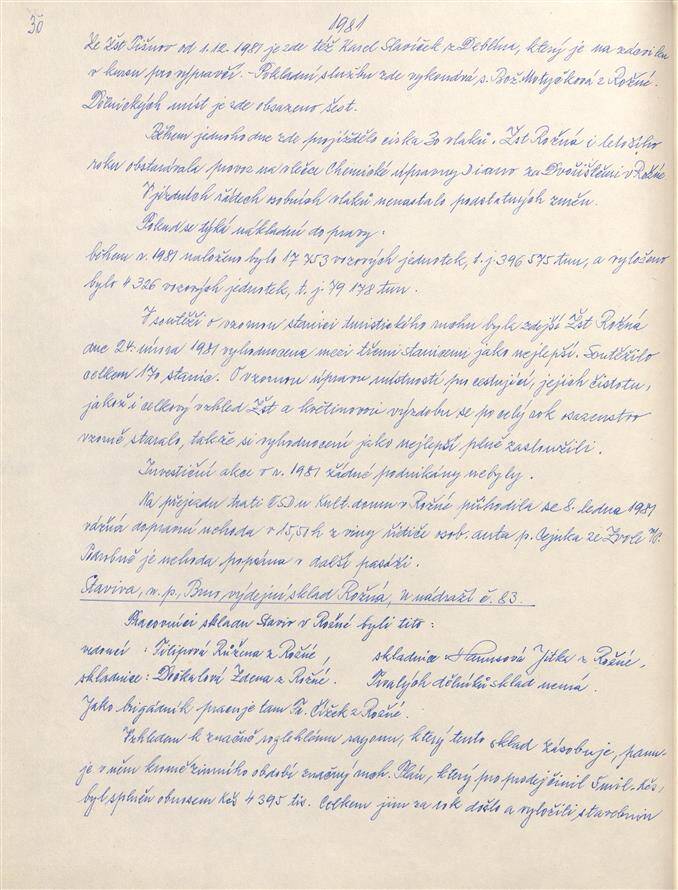 30
1981
Ze Žst Tišnov od 1.12. 1981 je zde též Karel Slavíček z Deblína, který je na zdraviku
v kursu pro výpravčí. – Pokladní službu zde vykonává s. Bož. Motyčková z Rožné.
Dělnických míst je zde obsazeno šest.
Během jednoho dne zde projíždělo cirka 30 vlaků. Žst Rožná i letošího
roku obstarávala provoz na vlečce Chemické úpravny Diamo za Dvořištěmi v Rožné
V jízdních řádech osobních vlaků nenastalo podstatných změn.
Pokud se týká nákladní dopravy:
během r. 1981 naloženo bylo 17 753 vozových jednotek, t.j. 396 575 tun, a vyloženo
bylo 4 326 vozových jednotek, t. j. 79 178 tun.
V soutěži o vzornou stanici turistického ruchu byla zdejší Žst Rožná
dne 24. února 1981 vyhodnocena mezi třemi stanicemi jako nejlepší. Soutěžilo
celkem 170 stanic. O vzornou úpravu místností pro cestující, jejich čistotu,
jakož i celkový vzhled Žst a květinovou výzdobu se po celý rok osazenstvo
vzorně staralo, takže si vyhodnocení jako nejlepší plně zasloužili.
Investiční akce v r. 1981 žádné podnikány nebyly.
Na přejezdu trati ČSD u Kult. domu v Rožné přihodila se 8. ledna 1981
vážná dopravní nehoda v 15,50 h z viny řidiče osob. auta p. Cejnka ze Zvole
Podrobně je nehoda popsána v další pasáži.
Staviva, n. p., Brno výdejní sklad Rožná, u nádraží č. 83.
Pracovníci skladu Staviv v Rožné byli tito:
vedoucí : Filipová Růžena z Rožné, skladnice Hanusová Jitka z Rožné,
skladnice: Dočkalová Zdena z Rožné. Trvalých dělníků sklad nemá.
Jako brigádník pracuje tam Fr. Čížek z Rožné.
Vzhledem k značně rozlehlému rayonu, který tento sklad zásobuje, panu-
je v něm kromě zimního období značný ruch. Plán, který pro prodej činil 5 mil. Kčs,
byl splněn obnosem Kčs 4 395 tis. Celkem jim za rok došlo a vyložili stavebnin